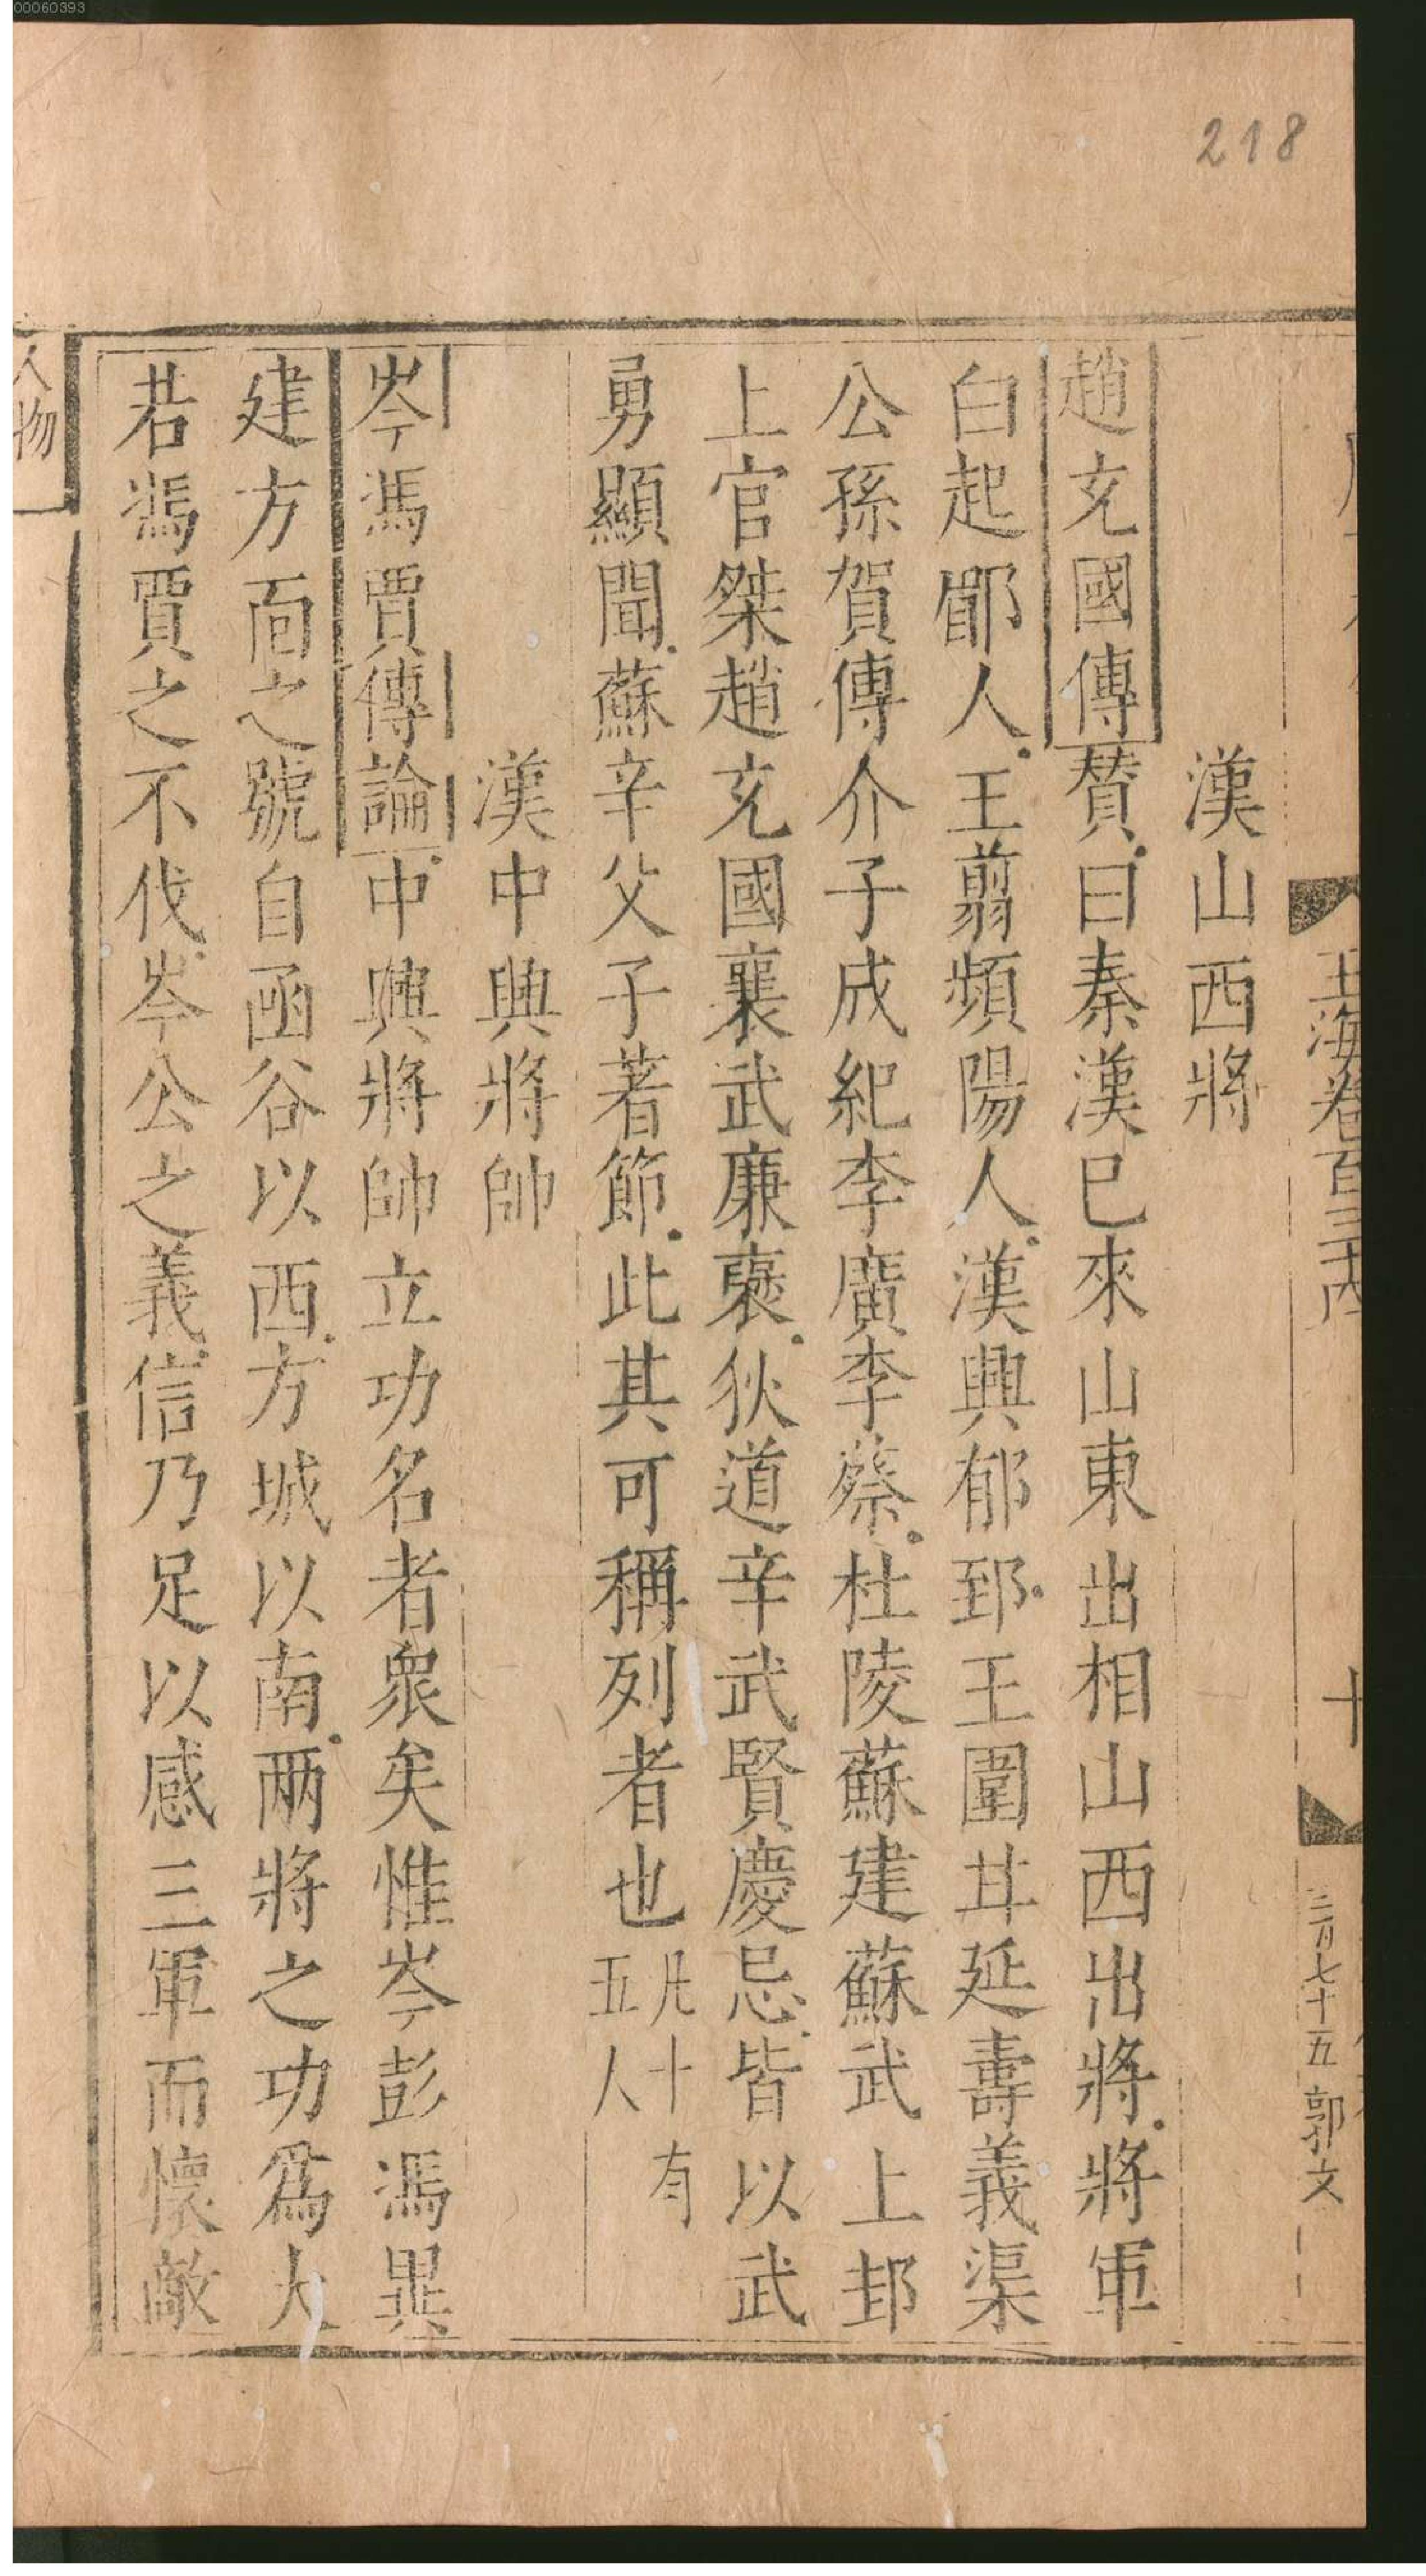 00060393
218
玉海卷百三十四
十
三月七十五 郭文
漢山西將
趙充國傳贊曰秦漢已來山東出相山西出將將軍
白起郿人王翦頻陽人漢興郁郅王圍甘延壽義渠
公孫賀傅介子成紀李廣李蔡杜陵蘇建蘇武上邽
上官桀趙充國襄武廉褒狄道辛武賢慶忌皆以武
勇顯聞蘇辛父子著節此其可稱列者也凡十有
五人
漢中興將帥
岑馮賈傳論中興將帥立功名者衆矣惟岑彭馮異
建方面之號自函谷以西方城以南兩將之功爲大
若馮賈之不伐岑公之義信乃足以感三軍而懷敵
人物